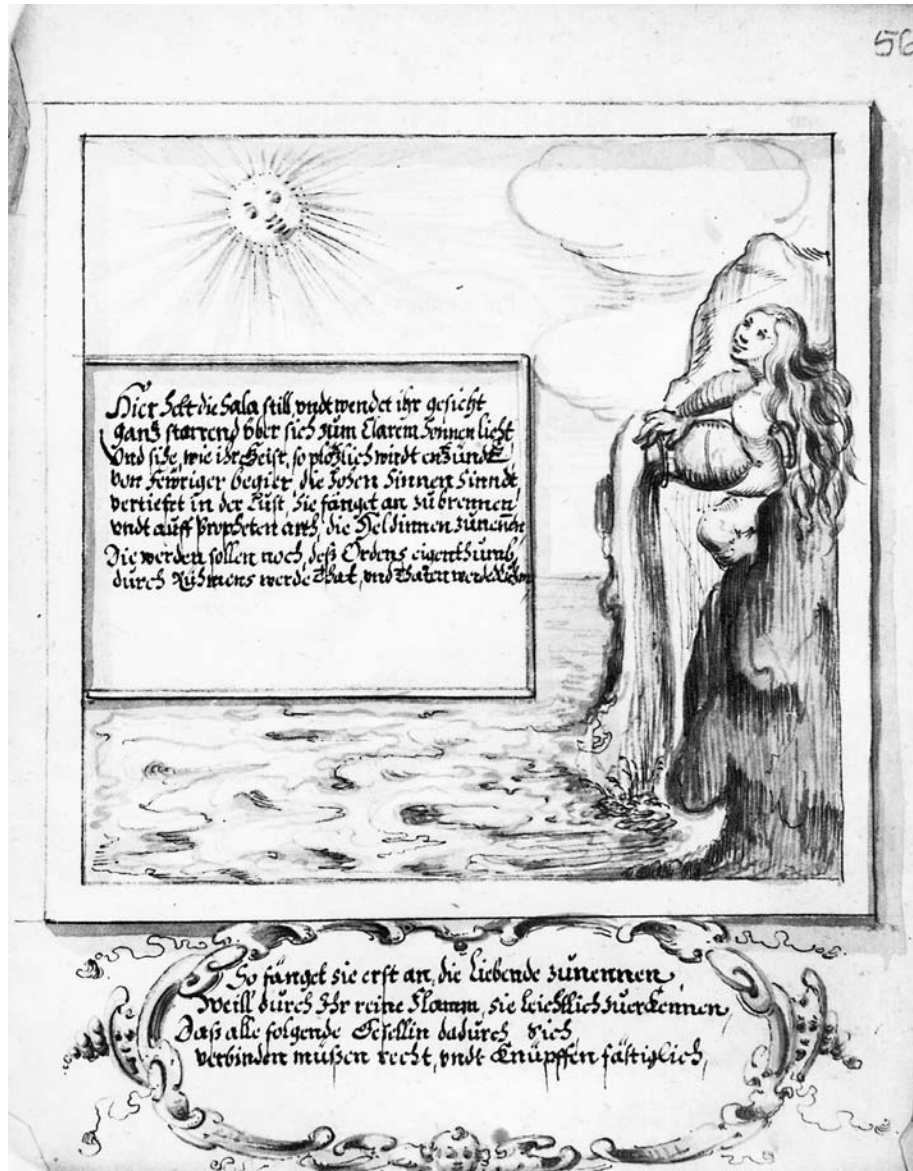 56
Hier helt die Sala still, vndt wendet ihr gesicht
ganß starrend über sich zum klarem Sonnen licht
Vnd sihe, wie ihr Geist, so plötzlich wirdt enßündt
von fewriger begier, die hohen Sinnen sinndt
vertiefft in der Lust, Sie fänget an zu brennen
vndt auff Propheten arth, die Heldinnen zunennen
Die werden sollen noch, deß Ordens eigenthumb,
durch Rühmens werde That, vnd Thaten werde
So fänget sie erst an, die Liebende zunennen,
Weill durch Ihr reine Flamm, sie leichtlich zuerkennen,
Daß alle folgende Gesellin dadurch Sich
verbinden müßen recht, vndt knüpffen fästiglich,